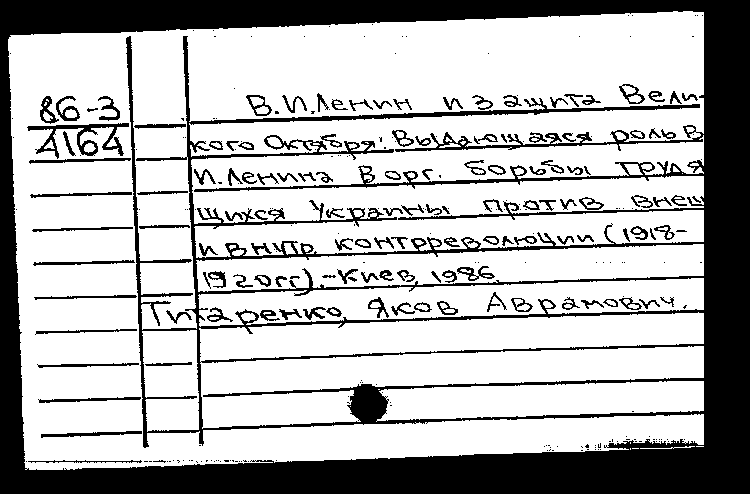 86-3 В.И.Ленин и защита Вели-
4164 кого Октября: Выдающаяся роль В
И.Ленина в орг. борьбы трудя
щихся Украины против внеш
и внутр. контрреволюции (1918-
1920гг).-Киев, 1986.
Титаренко, Яков Аврамович.